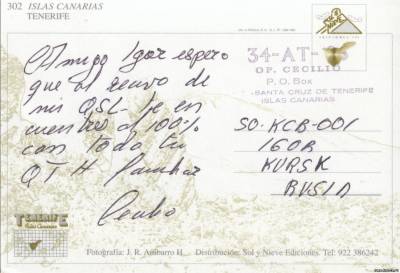 302 ISLAS CANARIAS
TENERIFE
SOL Y NIEVE
EDICIONES
Amigo Igor espero
que al recivo de
mis QSL te en
cuentres al 100%
con toda tu
QTH familiar
34-AT-
OP. CECILIO
P.O. Box
SANTA CRUZ DE TENERIFE
ISLAS CANARIAS
SO-KCB-001
IGOR
KURSK
RUSIA
TENERIFE
Islas Canarias
Fotografía: J. R. Anibarro H. Distribución: Sol y Nieve Ediciones. Tel: 922 386242